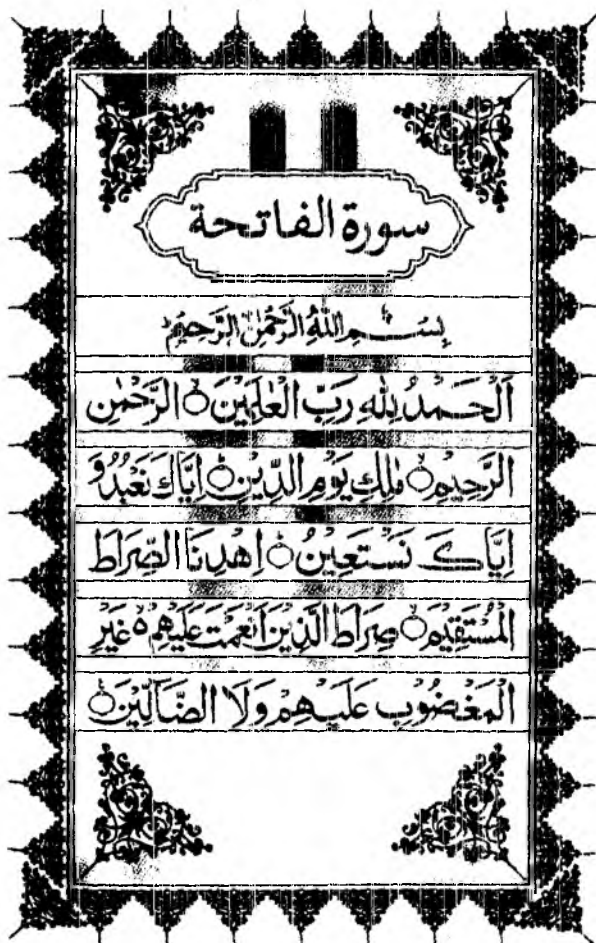 سورة الفاتحة
بِسْمِ اللّٰهِ الرَّحْمٰنِ الرَّحِيْمِ
اَلْحَمْدُ لِلّٰهِ رَبِّ الْعٰلَمِيْنَ ۙ الرَّحْمٰنِ
الرَّحِيْمِ ۙ مٰلِكِ يَوْمِ الدِّيْنِ ؕ اِيَّاكَ نَعْبُدُ وَ
اِيَّاكَ نَسْتَعِيْنُ ؕ اِهْدِنَا الصِّرَاطَ
الْمُسْتَقِيْمَ ۙ صِرَاطَ الَّذِيْنَ اَنْعَمْتَ عَلَيْهِمْ ۙ۬ غَيْرِ
الْمَغْضُوْبِ عَلَيْهِمْ وَلَا الضَّآلِّيْنَ